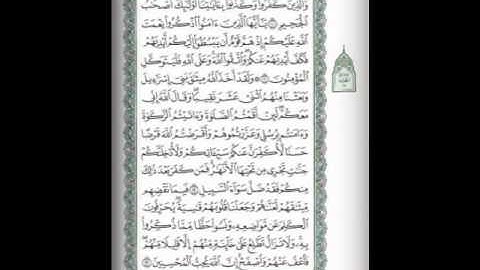 وَالَّذِينَ كَفَرُوا وَكَذَّبُوا بِـَٔايَـٰتِنَآ أُو۟لَـٰٓئِكَ أَصْحَـٰبُ
ٱلْجَحِيمِ ۝١٠ يَـٰٓأَيُّهَا ٱلَّذِينَ ءَامَنُوا۟ ٱذْكُرُوا۟ نِعْمَتَ
ٱللَّهِ عَلَيْكُمْ إِذْ هَمَّ قَوْمٌ أَن يَبْسُطُوٓا۟ إِلَيْكُمْ أَيْدِيَهُمْ
فَكَفَّ أَيْدِيَهُمْ عَنكُمْ ۖ وَٱتَّقُوا۟ ٱللَّهَ ۚ وَعَلَى ٱللَّهِ فَلْيَتَوَكَّلِ
ٱلْمُؤْمِنُونَ ۝١١ وَلَقَدْ أَخَذَ ٱللَّهُ مِيثَـٰقَ بَنِىٓ إِسْرَٰٓءِيلَ
وَبَعَثْنَا مِنْهُمُ ٱثْنَىْ عَشَرَ نَقِيبًا ۖ وَقَالَ ٱللَّهُ إِنِّى
مَعَكُمْ ۖ لَئِنْ أَقَمْتُمُ ٱلصَّلَوٰةَ وَءَاتَيْتُمُ ٱلزَّكَوٰةَ
وَءَامَنتُم بِرُسُلِى وَعَزَّرْتُمُوهُمْ وَأَقْرَضْتُمُ ٱللَّهَ قَرْضًا
حَسَنًا لَّأُكَفِّرَنَّ عَنكُمْ سَيِّـَٔاتِكُمْ وَلَأُدْخِلَنَّكُمْ
جَنَّـٰتٍ تَجْرِى مِن تَحْتِهَا ٱلْأَنْهَـٰرُ ۚ فَمَن كَفَرَ بَعْدَ ذَٰلِكَ
مِنكُمْ فَقَدْ ضَلَّ سَوَآءَ ٱلسَّبِيلِ ۝١٢ فَبِمَا نَقْضِهِم
مِّيثَـٰقَهُمْ لَعَنَّـٰهُمْ وَجَعَلْنَا قُلُوبَهُمْ قَـٰسِيَةً ۖ يُحَرِّفُونَ
ٱلْكَلِمَ عَن مَّوَاضِعِهِۦ ۙ وَنَسُوا۟ حَظًّا مِّمَّا ذُكِّرُوا۟
بِهِۦ ۚ وَلَا تَزَالُ تَطَّلِعُ عَلَىٰ خَآئِنَةٍ مِّنْهُمْ إِلَّا قَلِيلًا مِّنْهُمْ ۖ
فَٱعْفُ عَنْهُمْ وَٱصْفَحْ ۚ إِنَّ ٱللَّهَ يُحِبُّ ٱلْمُحْسِنِينَ ۝١٣